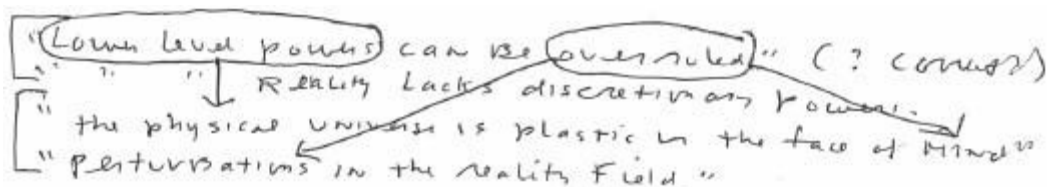 "Lower level powers can be overruled" (? correct?)
" " " " Reality lacks discretionary powers.
"the physical universe is plastic in the face of Mind"
"perturbations in the reality field"